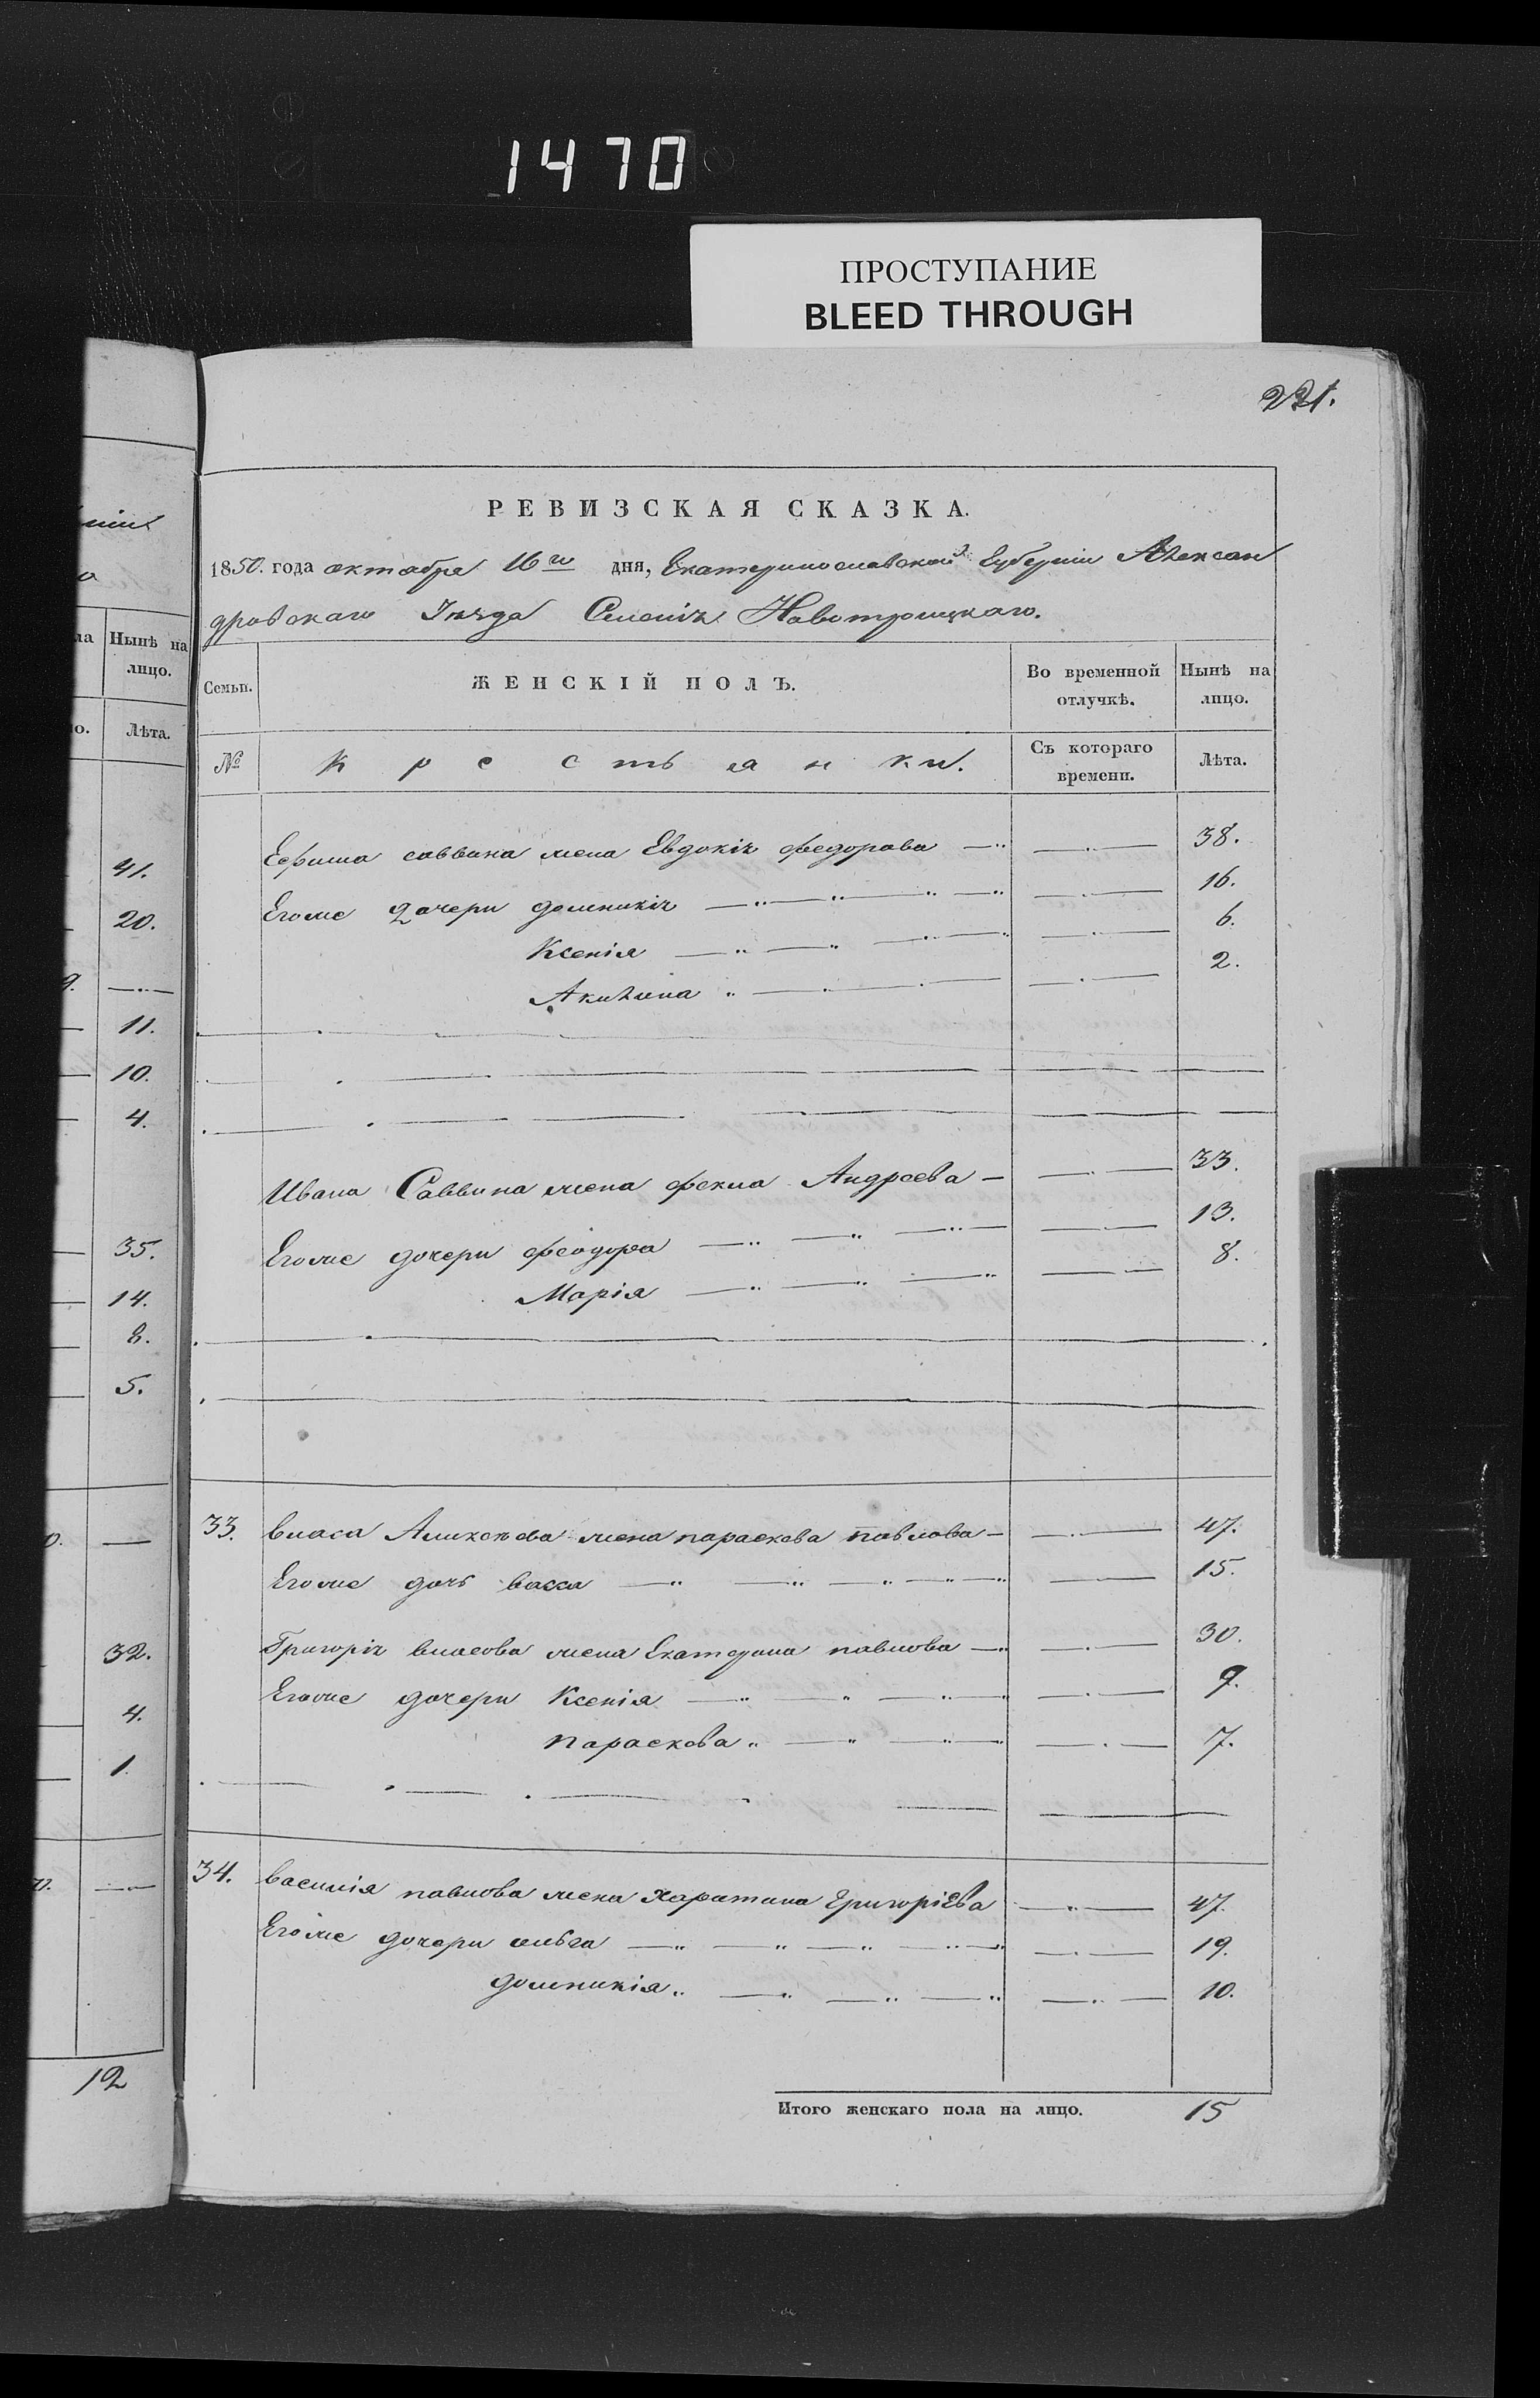 1470
ПРОСТУПАНИЕ
BLEED THROUGH
221.
РЕВИЗСКАЯ СКАЗКА.
1850. года октября 16го дня, Екатеринославской Губерніи Алексан
дровскаго Уѣзда Селенія Новотроицкаго.
ла Нынѣ на лицо.
о. Лѣта.
41.
20.
9.
11.
10.
4.
35.
14.
8.
5.
32.
4.
1.
12
Семьи. ЖЕНСКІЙ ПОЛЪ. Во временной отлучкѣ. Нынѣ на лицо.
№ Крестьянки. Съ котораго времени. Лѣта.
Ефима саввина жена Евдокія федорова 38.
Егоже дочери домникія 16.
Ксенія 6.
Акилина 2.
Ивана Саввина жена фекла Андреева 33.
Егоже дочери феодора 13.
Марія 8.
33. власа жена параскева павлова 47.
Егоже дочь васса 15.
Григорія власова жена Екатерина павлова 30.
Егоже дочери Ксенія 9.
параскева 7.
34. василія павлова жена харитина Григоріева 47.
Егоже дочери ольга 19.
домникія 10.
Итого женскаго пола на лицо. 15